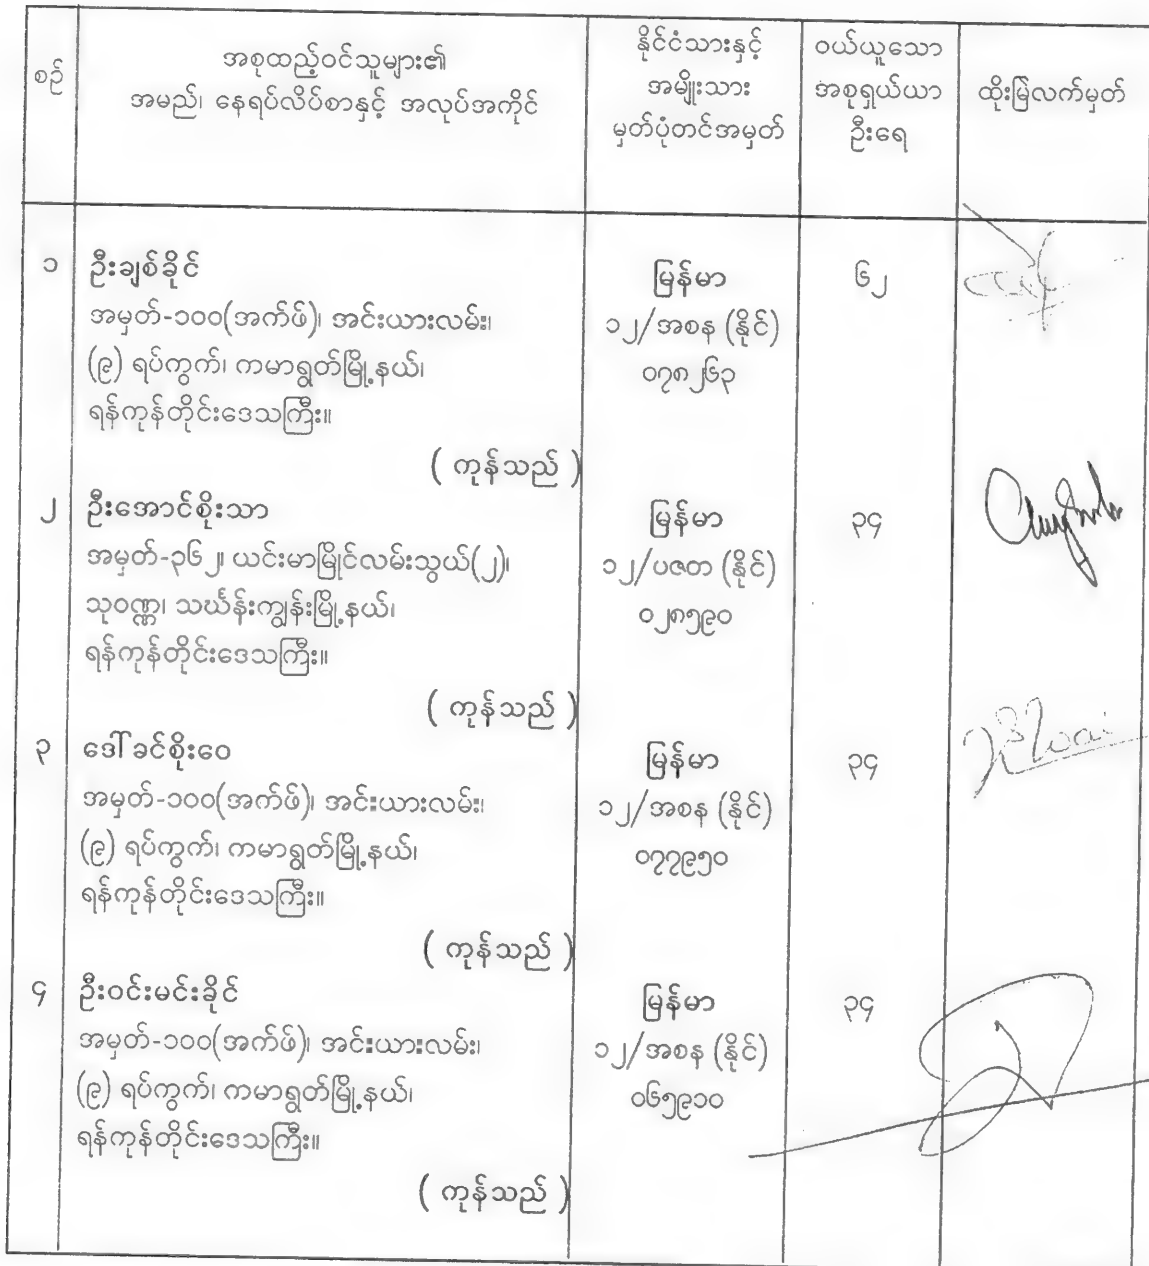 စဉ်
အစုထည့်ဝင်သူများ၏
အမည်၊ နေရပ်လိပ်စာနှင့် အလုပ်အကိုင်
နိုင်ငံသားနှင့်
အမျိုးသား
မှတ်ပုံတင်အမှတ်
ဝယ်ယူသော
အစုရှယ်ယာ
ဦးရေ
ထိုးမြဲလက်မှတ်
၁
ဦးချစ်ခိုင်
အမှတ်-၁၀၀(အက်ဖ်)၊ အင်းယားလမ်း၊
(၉) ရပ်ကွက်၊ ကမာရွတ်မြို့နယ်၊
ရန်ကုန်တိုင်းဒေသကြီး။
( ကုန်သည် )
မြန်မာ
၁၂/အစန (နိုင်)
၀၇၈၂၆၃
၆၂
၂
ဦးအောင်စိုးသာ
အမှတ်-၃၆၂၊ ယင်းမာမြိုင်လမ်းသွယ်(၂)၊
သုဝဏ္ဏ၊ သင်္ဃန်းကျွန်းမြို့နယ်၊
ရန်ကုန်တိုင်းဒေသကြီး။
( ကုန်သည် )
မြန်မာ
၁၂/ပဇတ (နိုင်)
၀၂၈၅၉၀
၃၄
၃
ဒေါ်ခင်စိုးဝေ
အမှတ်-၁၀၀(အက်ဖ်)၊ အင်းယားလမ်း၊
(၉) ရပ်ကွက်၊ ကမာရွတ်မြို့နယ်၊
ရန်ကုန်တိုင်းဒေသကြီး။
( ကုန်သည် )
မြန်မာ
၁၂/အစန (နိုင်)
၀၇၇၉၅၀
၃၄
၄
ဦးဝင်းမင်းခိုင်
အမှတ်-၁၀၀(အက်ဖ်)၊ အင်းယားလမ်း၊
(၉) ရပ်ကွက်၊ ကမာရွတ်မြို့နယ်၊
ရန်ကုန်တိုင်းဒေသကြီး။
( ကုန်သည် )
မြန်မာ
၁၂/အစန (နိုင်)
၀၆၅၉၁၀
၃၄